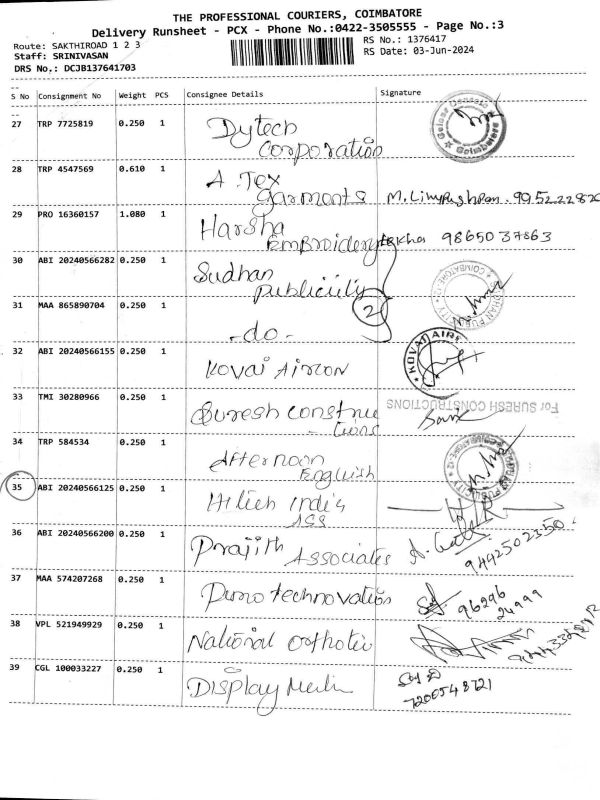 THE PROFESSIONAL COURIERS, COIMBATORE
Delivery Runsheet - PCX - Phone No.:0422-3505555 - Page No.:3
Route: SAKTHIROAD 1 2 3
RS No.: 1376417
Staff: SRINIVASAN
RS Date: 03-Jun-2024
DRS No.: DCJB137641703
S No Consignment No Weight PCS Consignee Details Signature
27 TRP 7725819 0.250 1 Dytech
Corporation
28 TRP 4547569 0.610 1 A. Tex
garments
29 PRO 16360157 1.080 1 Harsha
Embroidery 9865037863
30 ABI 20240566282 0.250 1 Sudhan
Publicity
2
31 MAA 865890704 0.250 1 -do-
32 ABI 20240566155 0.250 1 Kovai Aircon
KOVAI AIRC
33 TMI 30280966 0.250 1 Suresh Constru
ctions
For SURESH CONSTRUCTIONS
34 TRP 584534 0.250 1 Afternoon
English
35 ABI 20240566125 0.250 1 Hitech India
ASS
36 ABI 20240566200 0.250 1 Prajith Associates
9442502350
37 MAA 574207268 0.250 1 Puro technovation
96296
24999
38 VPL 521949929 0.250 1 National Orthotic
39 CGL 100033227 0.250 1 Display Merlin
7200548721